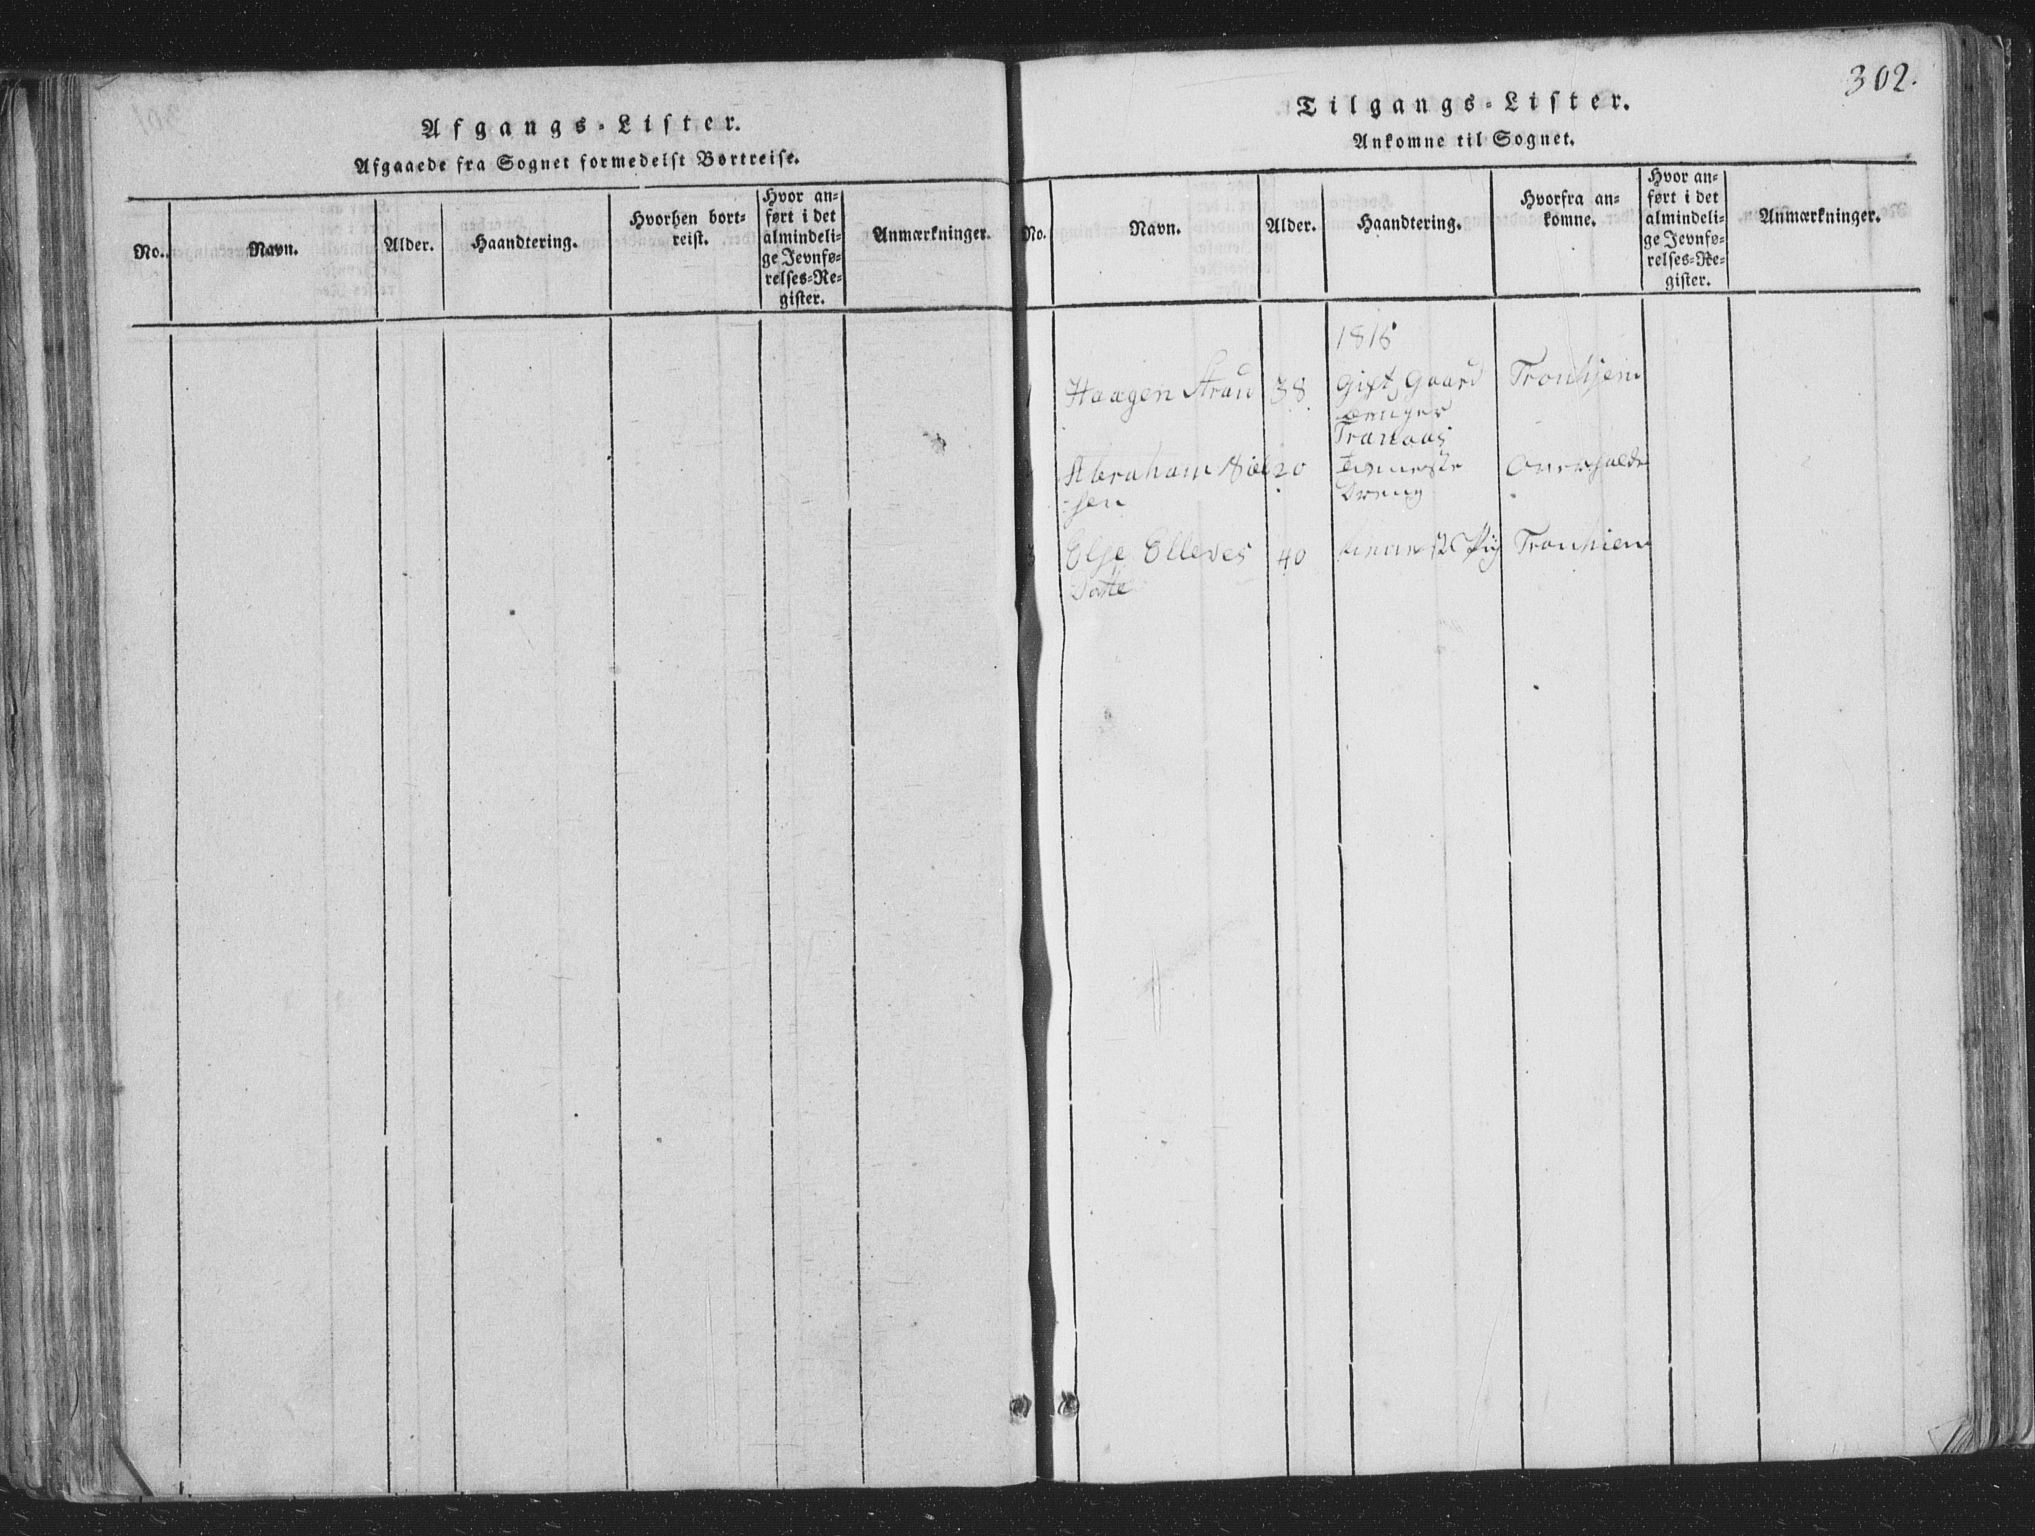 Afgangs-Lister.
Afgaaede fra Sognet formedelst Bortreise.
No.
Navn.
Alder.
Haandtering.
Hvorhen bort-
reist.
Hvor an-
ført i det
almindeli-
ge Jevnfø-
relses-Re-
gister.
Anmærkninger.
302.
Tilgangs-Lister.
Ankomne til Sognet.
No.
Navn.
Alder.
Haandtering.
Hvorfra an-
komne.
Hvor an-
ført i det
almindeli-
ge Jevnfø-
relses-Re-
gister.
Anmærkninger.
1816
Haagen 38 Gift Gaard Tronhjem
Tranaas
Abraham Niel 20
-sen Dreng
3 Else Elleves 40 Tronhiem
Datte